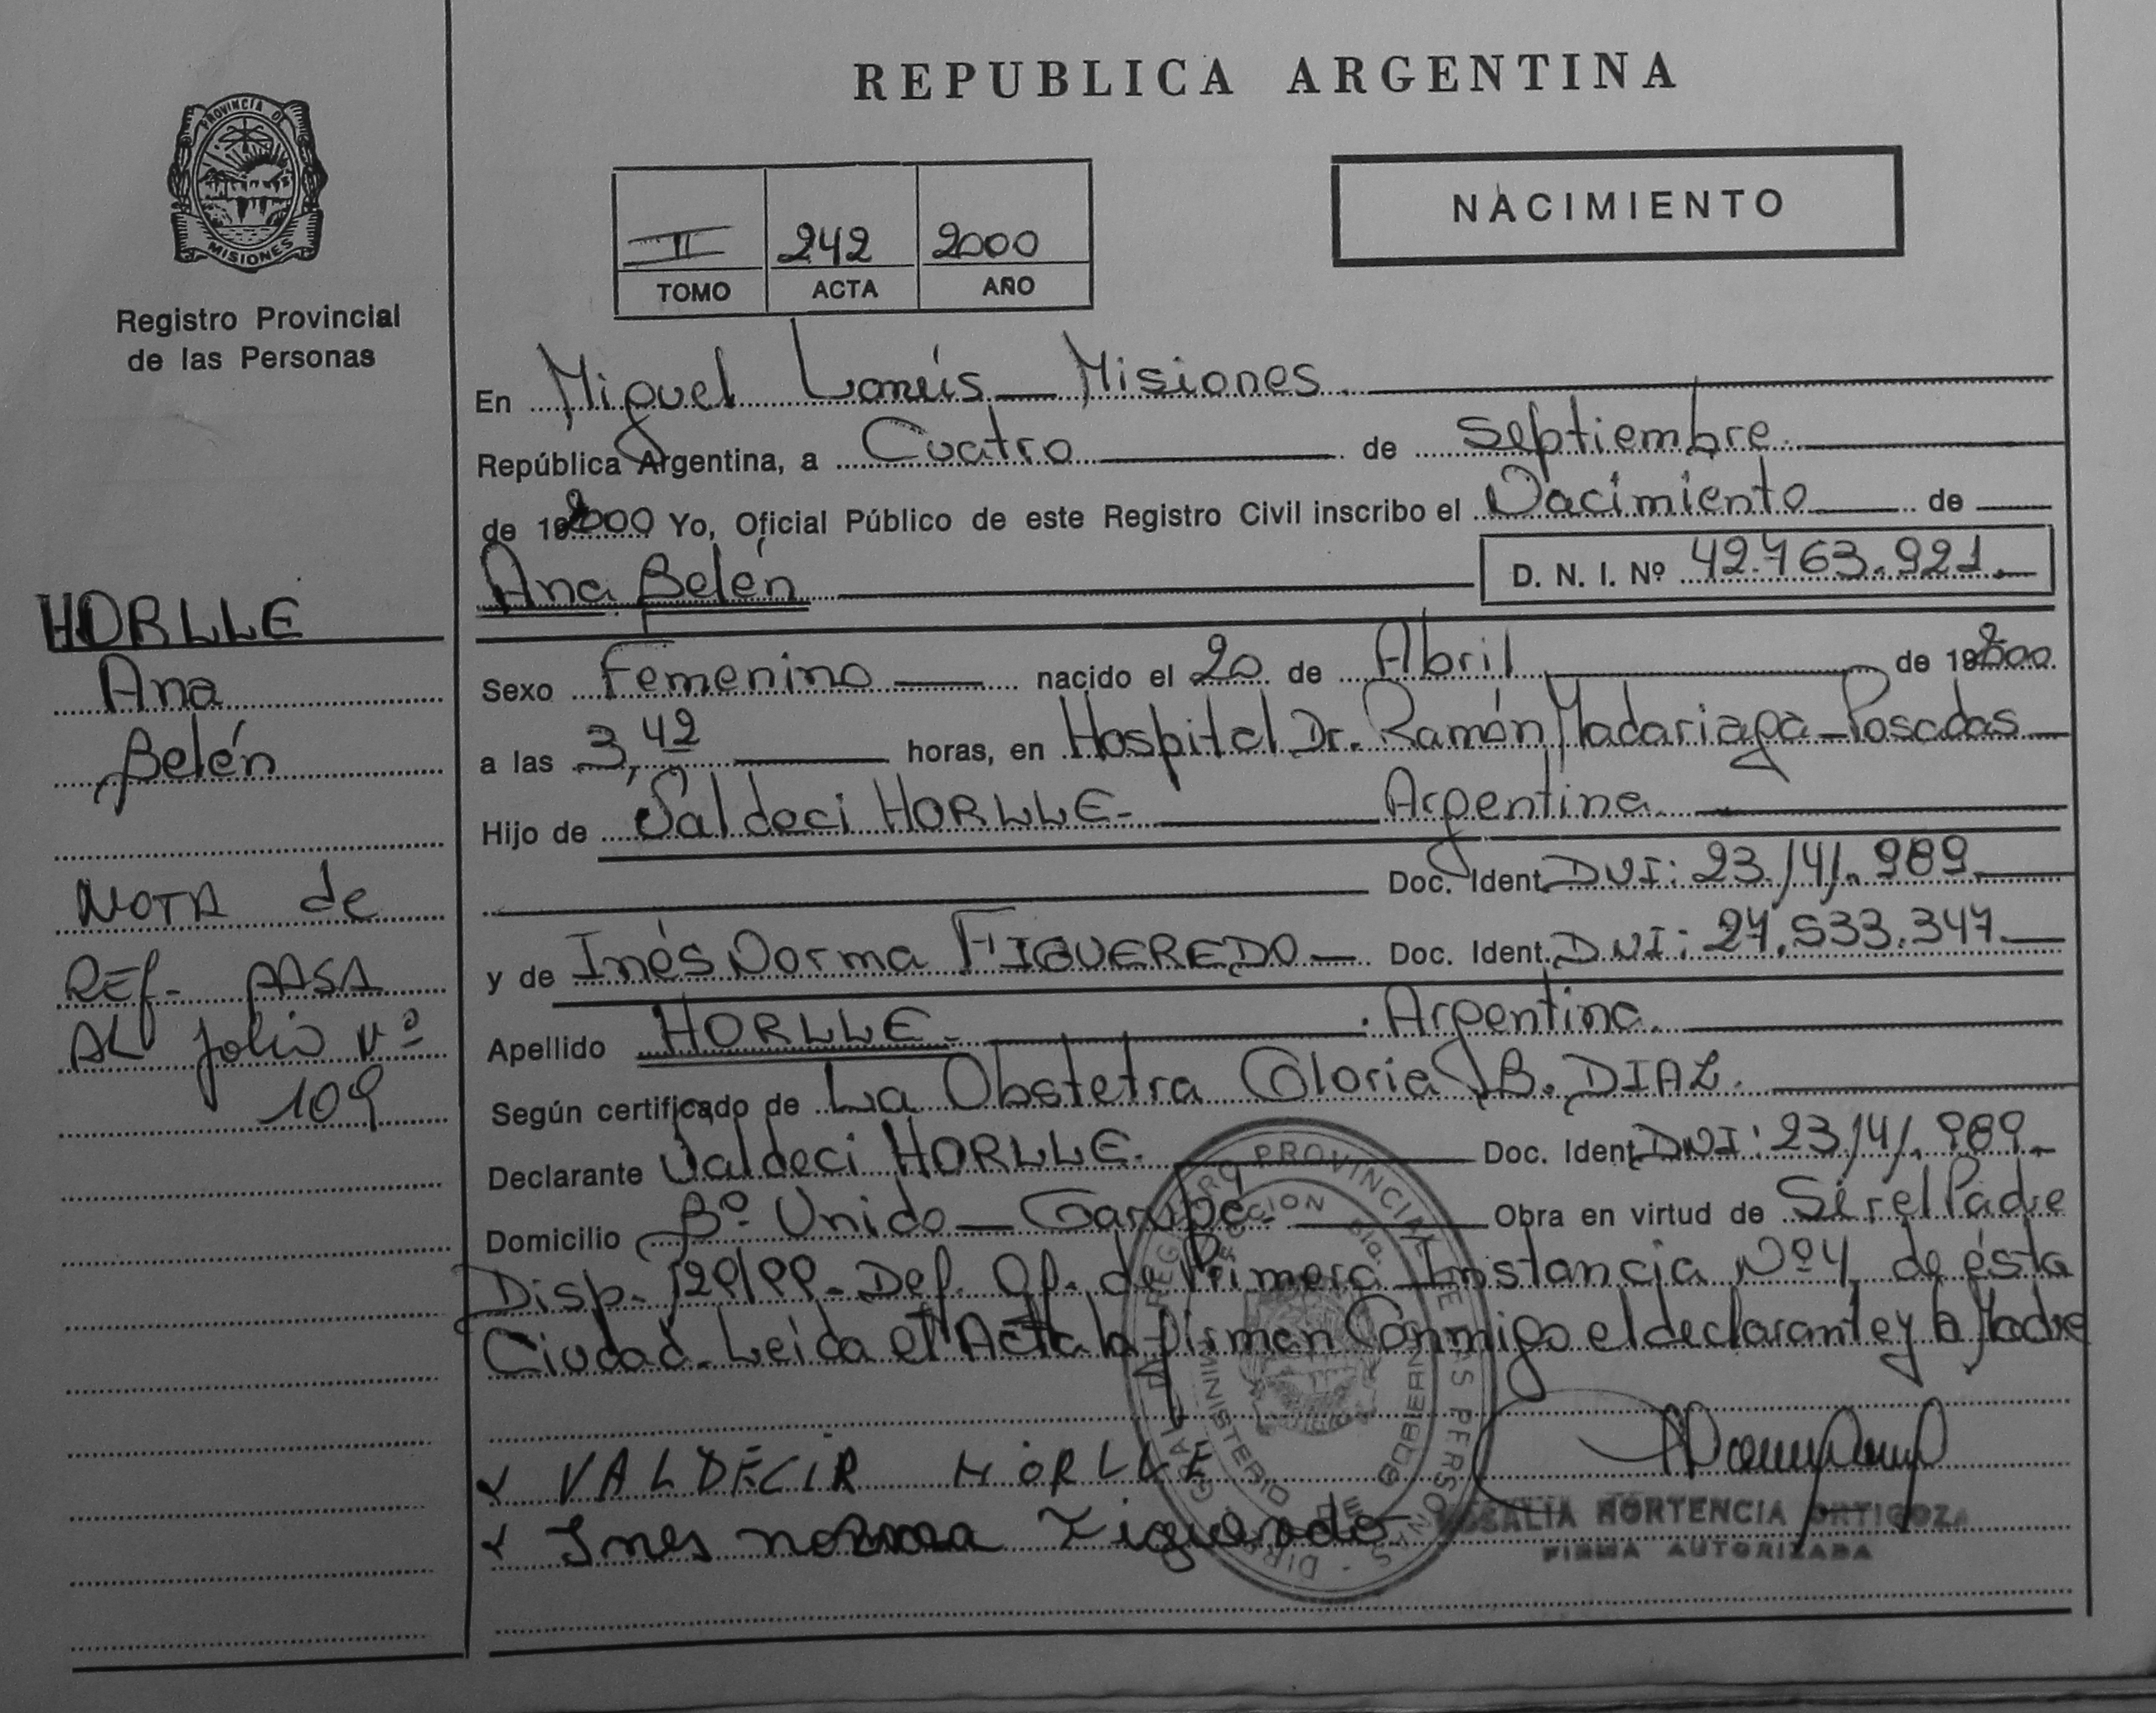 PROVINCIA DE
MISIONES
Registro Provincial
de las Personas
HORLLE
Ana
Belén
NOTA de
REf- PASA
AL folio Nº
109
REPUBLICA ARGENTINA
NACIMIENTO
II 242 2000
TOMO ACTA AÑO
En Miguel Lanús - Misiones.
República Argentina, a Cuatro de Septiembre
de 2000 Yo, Oficial Público de este Registro Civil inscribo el Nacimiento de
Ana Belén D. N. I. Nº 42.463.921.
Sexo Femenino nacido el 20 de Abril de 2000
a las 3,42 horas, en Hospital Dr. Ramón Madariaga - Posadas
Hijo de Valdeci HORLLE- Argentina
Doc. Ident. DNI: 23.141.989
y de Inés Norma FIGUEREDO - Doc. Ident. DNI: 27.533.347
Apellido HORLLE. Argentina.
Según certificado de La Obstetra Gloria B. DIAZ.
Declarante Valdeci HORLLE. Doc. Ident DNI: 23.141.989.
Domicilio Bº Unido - Garupá- Obra en virtud de Ser el Padre
Disp. 129/99- Def. Of. de Primera Instancia Nº4 de ésta
Ciudad- Leida el Acta la firman Conmigo el declarante y la Madre
VALDECIR HORLLE
Ines norma Figueredo
ROSALIA HORTENCIA ORTIGOZA
FIRMA AUTORIZADA
REGISTRO PROVINCIAL DE LAS PERSONAS
MINISTERIO DE GOBIERNO